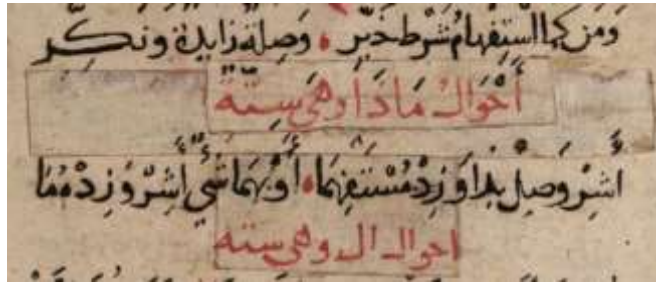 وَمَن كَمَا اسْتِفْهَامُ شَرْط خَبَر ۰ وَصِلَة زَايِدَة وَنَكِّر
أَحْوَالُ مَاذَا وَهِيَ سِتَّةٌ
أَشِرْ وَصِلْ بِذَا وَزِدْ مُسْتَفْهِمَا ۰ أَوْ بِهِمَا شَيْ أَشِرْ وَزِدْهُمَا
احوال ال وهي سته